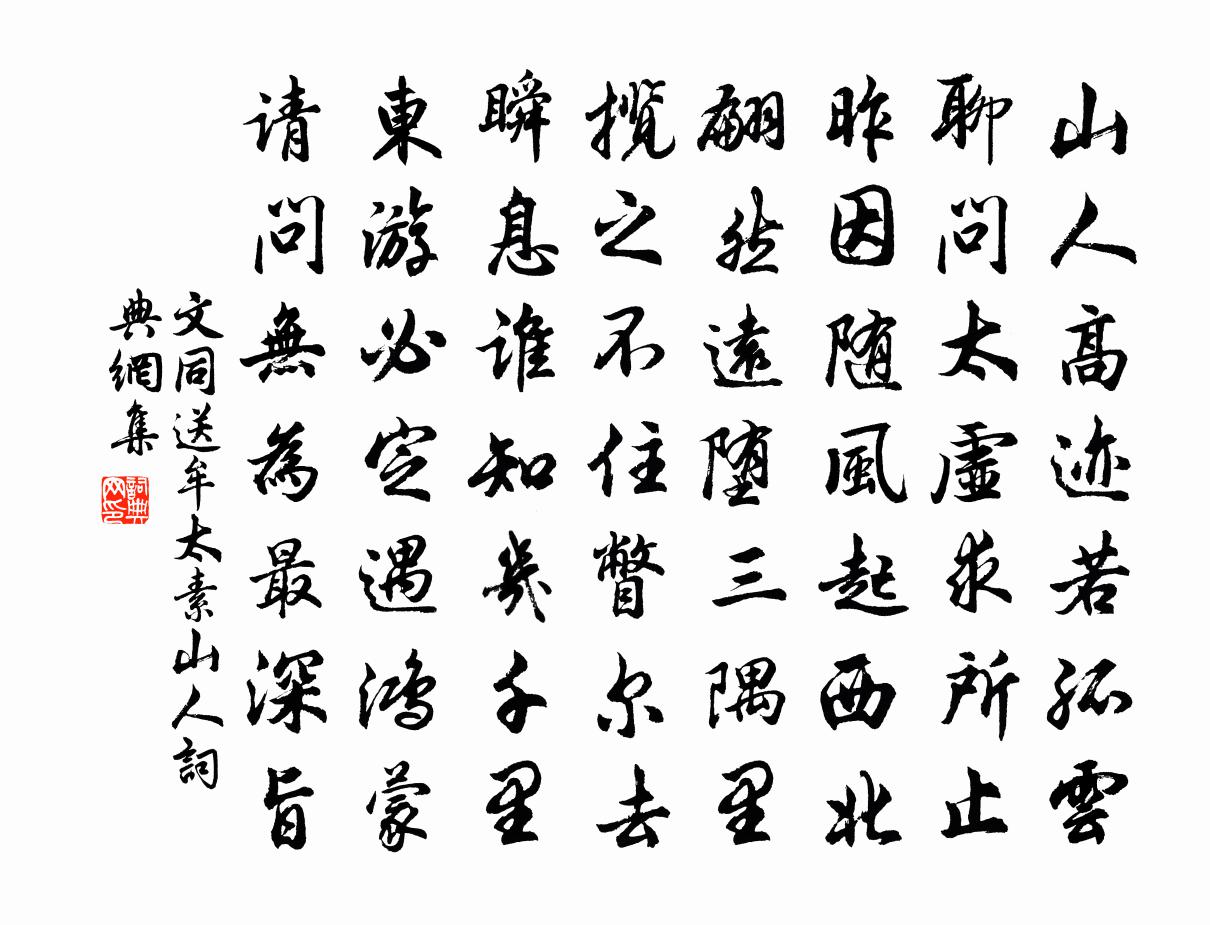 山人高迹若孤雲
聊問太虛求所止
昨因随風起西北
翩然遠堕三隅里
揽之不住瞥尔去
瞬息谁知幾千里
東游必定遇鸿蒙
请問無為最深旨
文同送牟太素山人詞
典網集
詞典网印